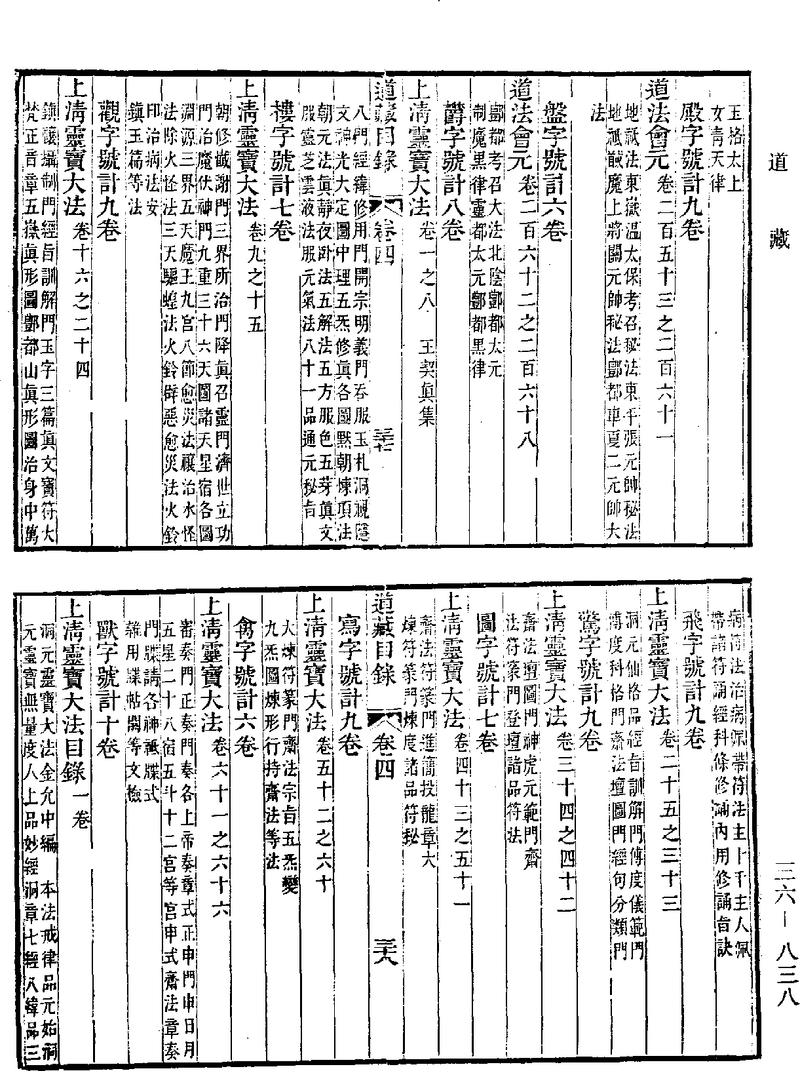 道藏
玉格太上
女青天律
殿字號計九卷
道法會元 卷二百五十三之二百六十一
地祇法東嶽溫太保考召秘法東平張元帥秘法
地祇馘魔上將關元帥秘法酆都車夏二元帥大
法
盤字號計六卷
道法會元 卷二百六十二之二百六十八
酆都考召大法北陰酆都太元
制魔黑律靈都太元酆都黑律
欝字號計八卷
上淸靈寶大法 卷一之八 王契眞集
道藏目錄 卷四 三七
八門經緯修用門開宗明義門吞服玉札洞視隱
文神光大定圖中理五炁修眞各圖黙朝煉項法
朝元法眞靜夜卧法五解法五方服色五芽眞文
服靈芝雲液法服元氣法八十一品通元秘旨
樓字號計七卷
上淸靈寶大法 卷九之十五
朝修懺謝門三界所治門降眞召靈門濟世立功
門治魔伏神門九重三十六天圖諸天星宿各圖
淵源三界五天魔王九宮八節愈災法禳治水怪
法除火怪法三天驅蝗法火鈴辟惡愈災法火鈴
印治病法安
鎮玉篇等法
觀字號計九卷
上淸靈寶大法 卷十六之二十四
鎮禳攝制門經旨訓解門玉字三篇眞文寶符大
梵正音章五嶽眞形圖酆都山眞形圖治身中萬
病符法治病佩帶符法主卜千主人佩
帶諸符誦經科條修誦內用修誦旨訣
飛字號計九卷
上淸靈寶大法 卷二十五之三十三
洞元仙格品經旨訓解門傳度儀範門
傳度科格門齋法壇圖門經句分類門
驚字號計九卷
上淸靈寶大法 卷三十四之四十二
齋法壇圖門神虎元範門齋
法符篆門登壇諸品符法
圖字號計七卷
上淸靈寶大法 卷四十三之五十一
齋法符篆門進簡投龍章大
煉符篆門煉度諸品符秘
道藏目錄 卷四 三八
寫字號計九卷
上淸靈寶大法 卷五十二之六十
大煉符篆門齋法宗旨五炁變
九炁圖煉形行持齋法等法
禽字號計六卷
上淸靈寶大法 卷六十一之六十六
齋奏門正奏門奏各上帝奏章式正申門申日月
五星二十八宿五斗十二宮等宮申式齋法章奏
門牒請各神祇牒式
雜用牒帖關等文檢
獸字號計十卷
上淸靈寶大法目錄 一卷
洞元靈寶大法金允中編 本法戒律品元始洞
元靈寶無量度人上品妙經洞章七經八緯品三
三六—八三八